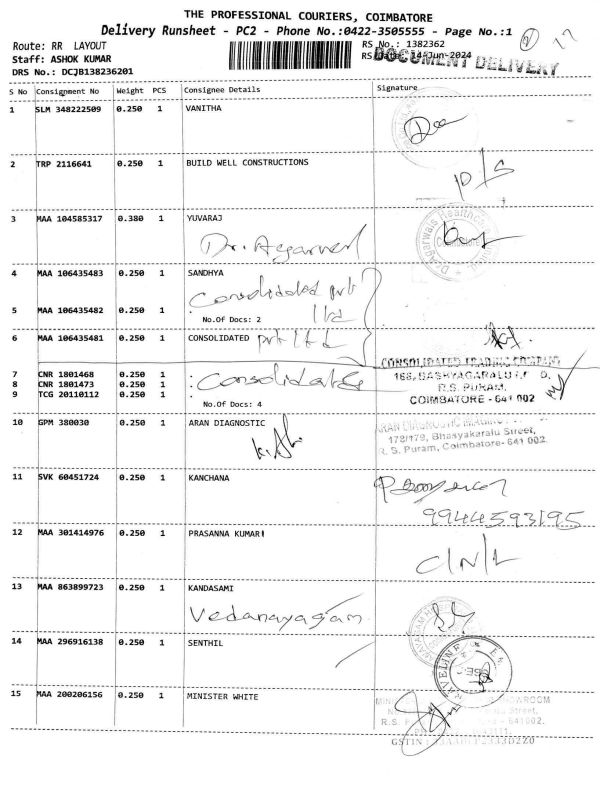 THE PROFESSIONAL COURIERS, COIMBATORE
Delivery Runsheet - PC2 - Phone No.:0422-3505555 - Page No.:1
Route: RR LAYOUT
RS No.: 1382362
Staff: ASHOK KUMAR
RS Date: 14-Jun-2024
DOCUMENT DELIVERY
DRS No.: DCJB138236201
S No Consignment No Weight PCS Consignee Details Signature
1 SLM 348222509 0.250 1 VANITHA
2 TRP 2116641 0.250 1 BUILD WELL CONSTRUCTIONS
D/S
3 MAA 104585317 0.380 1 YUVARAJ
Dr. Agarwal
4 MAA 106435483 0.250 1 SANDHYA
Consolidated pvt
ltd
5 MAA 106435482 0.250 1 .
No.Of Docs: 2
6 MAA 106435481 0.250 1 CONSOLIDATED pvt ltd
CONSOLIDATED TRADING COMPANY
7 CNR 1801468 0.250 1 .
8 CNR 1801473 0.250 1 : Consolidated
9 TCG 20110112 0.250 1 .
R.S. PURAM,
COIMBATORE - 641 002
No.Of Docs: 4
10 GPM 380030 0.250 1 ARAN DIAGNOSTIC
172/179, Bhasyakaralu Street,
R. S. Puram, Coimbatore- 641 002.
11 SVK 60451724 0.250 1 KANCHANA
9944593195
12 MAA 301414976 0.250 1 PRASANNA KUMARI
C/N/L
13 MAA 863899723 0.250 1 KANDASAMI
Vedanayagam
14 MAA 296916138 0.250 1 SENTHIL
15 MAA 200206156 0.250 1 MINISTER WHITE